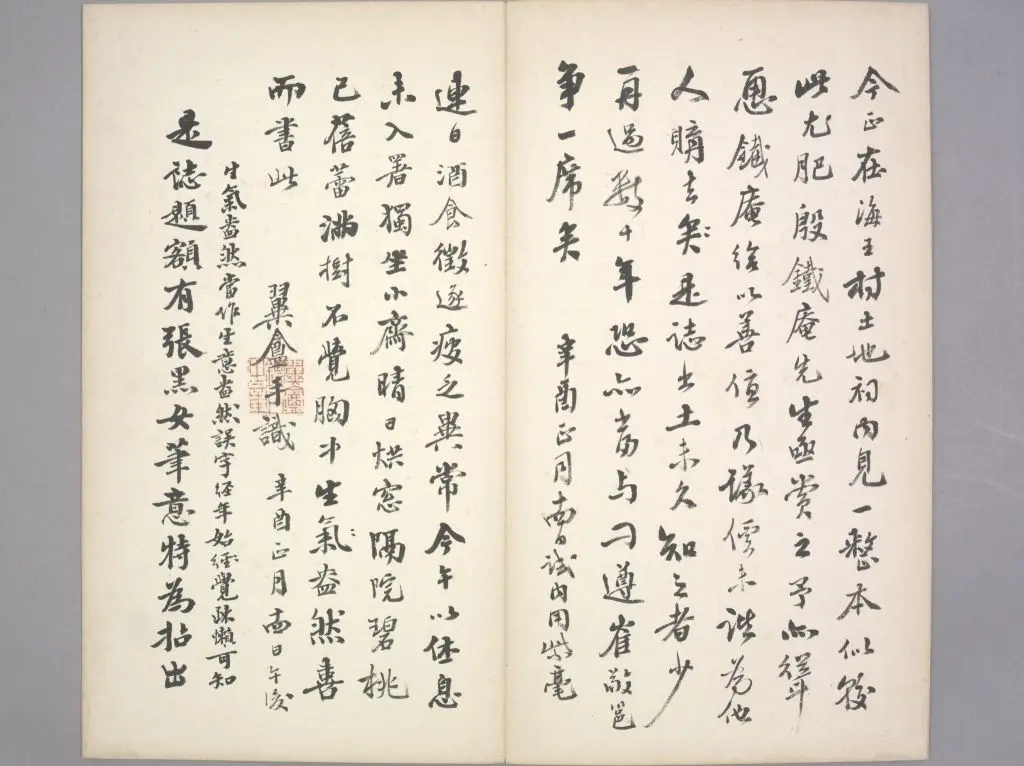 今正在海王村土地祠內見一整本似較
此尤肥殷鐵庵先生亟賞之予亦聳
恿鐵庵給以善值乃議價未諧為他
人購去矣是誌出土未久知之者少
再過數十年恐亦當与刁遵崔敬邕
爭一席矣 辛酉正月十四日試內用紫毫
連日酒食徵逐疲乏異常今午以休息
未入署獨坐小齋晴日烘窓隔院碧桃
已蓓蕾滿樹不覺胸中生氣盎然喜
而書此 翼盦手識 辛酉正月十四日午後
生氣盎然當作生意盎然誤字經年始經覺疎懶可知
是誌題額有張黑女筆意特為拈出